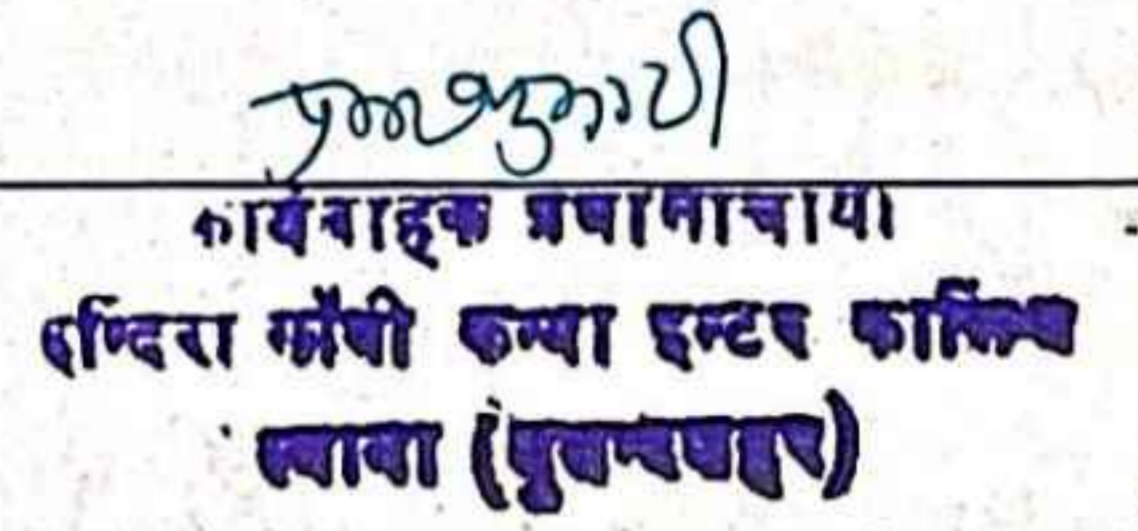 कार्यवाहक प्रधानाचार्या
इन्दिरा गाँधी कन्या इन्टर कालिज
स्याना (बुलन्दशहर)